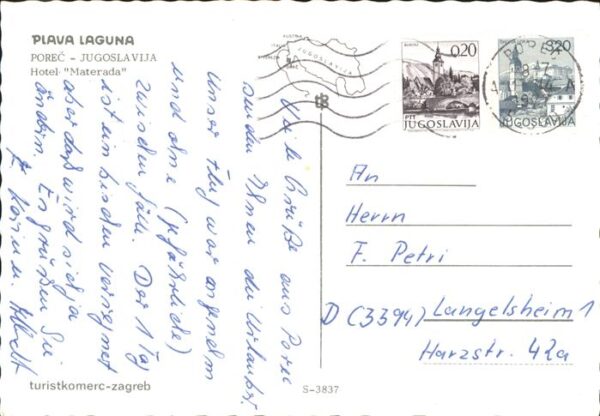 PLAVA LAGUNA
POREČ - JUGOSLAVIJA
Hotel "Materada"
Viele Grüße aus Poreč
senden Ihnen die Urlauber.
Unser Flug war angenehm
und ohne (gefährliche)
Zwischenfälle. Der 1 Tag
ist ein bisschen verregnet
aber das wird sich ja
ändern. Es grüßen Sie
Karin u.
turistkomerc-zagreb
S-3837
JUGOSLAVIJA
0,20
PTT
JUGOSLAVIJA
3,20
JUGOSLAVIJA
POREČ
An
Herrn
F. Petri
D (3394) Langelsheim 1
Harzstr. 42a